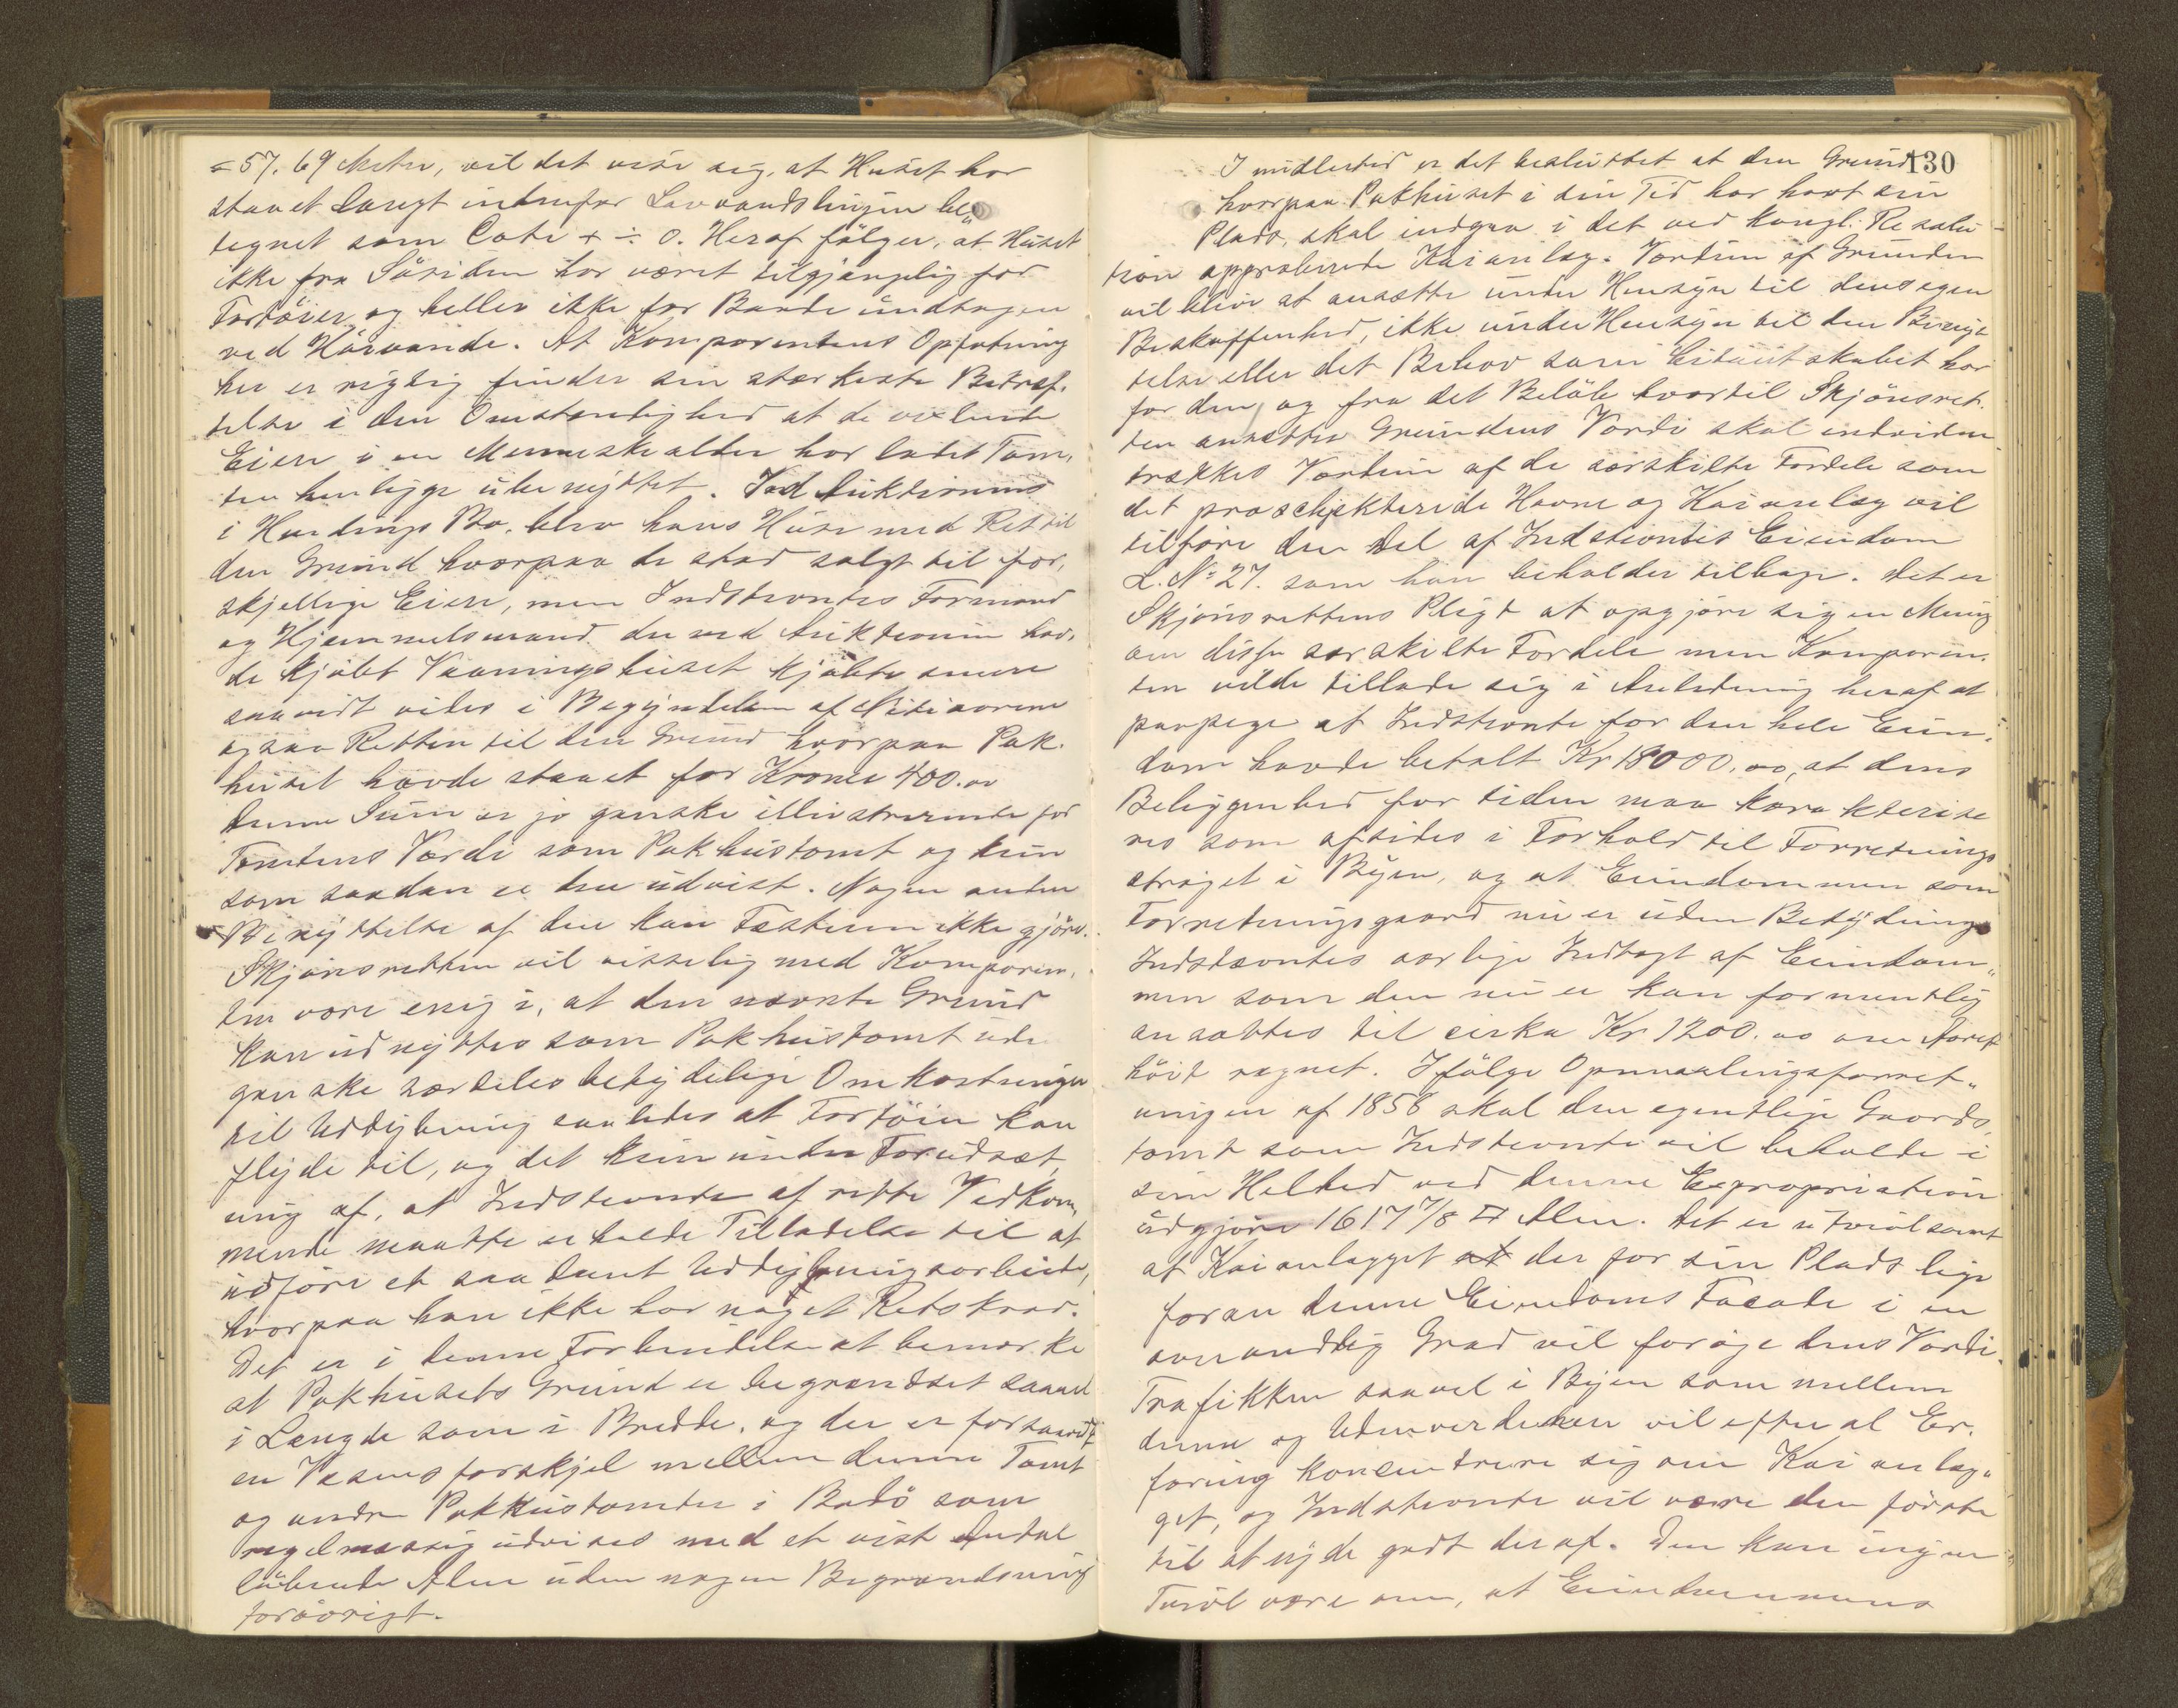 = 57.69 Meter, vil det vise sig, at Huset har
staaet langt indenfor Lavvandslinjen be„
tegnet som Cote + ÷ 0. Heraf fölger, at Huset
ikke fra Sösiden har været tilgjængelig for
Fartöier og heller ikke for Baade undtagen
ved Höivande. At Komparentens Opfatning
her er rigtig finder sin stærkeste Bekræf-
telse i den Omstændighed at de vexlende
Eiere i en Menneskealder har ladet Tom„
ten henligge ubenyttet. Ved Auktionen
i Hardings Bo, blev hans Huse med Ret til
den Grund hvorpaa de stod solgt til for„
skjellige Eiere, men Indstevntes Formand
og Hjemmelsmand der ved Auktionen hav„
de kjöbt Vaaningshuset kjöbte senere
saavidt vides i Begyndelsen af Nitiaarene
ogsaa Retten til den Grund hvorpaa Pak-
huset havde staaet for Kroner 400.00
Denne Sum er jo ganske illustrerende for
Tomtens Værdi som Pakhustomt og kun
som saadan er den udvist. Nogen anden
Benyttelse af den kan Fæsteren ikke gjöre.
Skjönsretten vil visselig med Komparen„
ten være enig i, at den nævnte Grund
kan udnyttes som Pakhustomt uden
ganske særdeles betydelige Omkostninger
til Uddybning saaledes at Fartöier kan
flyde til, og det kun under Forudsæt„
ning af, at Indstevnte af rette Vedkom„
mende maatte erholde Tilladelse til at
udföre et saadant Uddybningsarbeide,
hvorpaa han ikke har noget Retskrav.
Det er i denne Forbindelse at bemærke
at Pakhusets Grund er begrændset saavel
i Længde som i Bredde, og der er forsaavidt
en Væsensforskjel mellem denne Tomt
og andre Pakhustomter i Bodö som
regelmæssig udvises med et vist Antal
löbende Alen uden nogen Begrændsning
forövrigt.
130
Imidlertid er det besluttet at den Grund
hvorpaa Pakhuset i sin Tid har havt sin
Plads, skal indgaa i det ved kongl. Resolu-
tion approberede Kaianlæg. Værdien af Grunden
vil blive at ansætte under Hensyn til dens egen
Beskaffenhed, ikke under Hensyn til den Benyt
telse eller det Behov som Eidsivtskabet har
for den, og fra det Belöb hvortil Skjönsret-
ten ansætter Grundens Værdi skal endvidere
trækkes Værdien af de særskilte Fordele som
det proschjekterede Havne og Kaianlæg vil
tilföre den Del af Indstevntes Eiendom
L. No 27. som han beholder tilbage. Det er
Skjönsrettens Pligt at opgjöre sig en Mening
om disse særskilte Fordele men Komparen-
ten vilde tillade sig i Anledning heraf at
paapege at Indstevnte for den hele Eien„
dom havde betalt Kr 18000.00, at dens
Beliggenhed for tiden maa karakterise
res som afsides i Forhold til Forretnings
ströget i Byen, og at Eiendommen som
Forretningsgaard nu er uden Betydning
Indstævntes aarlige Indtægt af Eiendom„
men som den nu er kan formentlig
ansættes til cirka Kr 1200.00 om Aaret
höit regnet. Ifölge Opmaalingsforret„
ningen af 1858 skal den egentlige Gaards„
tomt som Indstevnte vil beholde i
sin Helhed ved denne Expropriation
udgjöre 1617 7/8 □ Alen. Det er utvivlsomt
at Kaianlægget der for sin Plads lige
foran denne Eiendoms Facade i en
overordentlig Grad vil foröge dens Værdi.
Trafikken saavel i Byen som mellem
denne og Udenverdenen vil efter al Er-
faring koncentrere sig om Kaianlæg„
get, og Indstevnte vil være den förste
til at nyde godt deraf. Der kan ingen
Tvivl være om, at Eiendommens